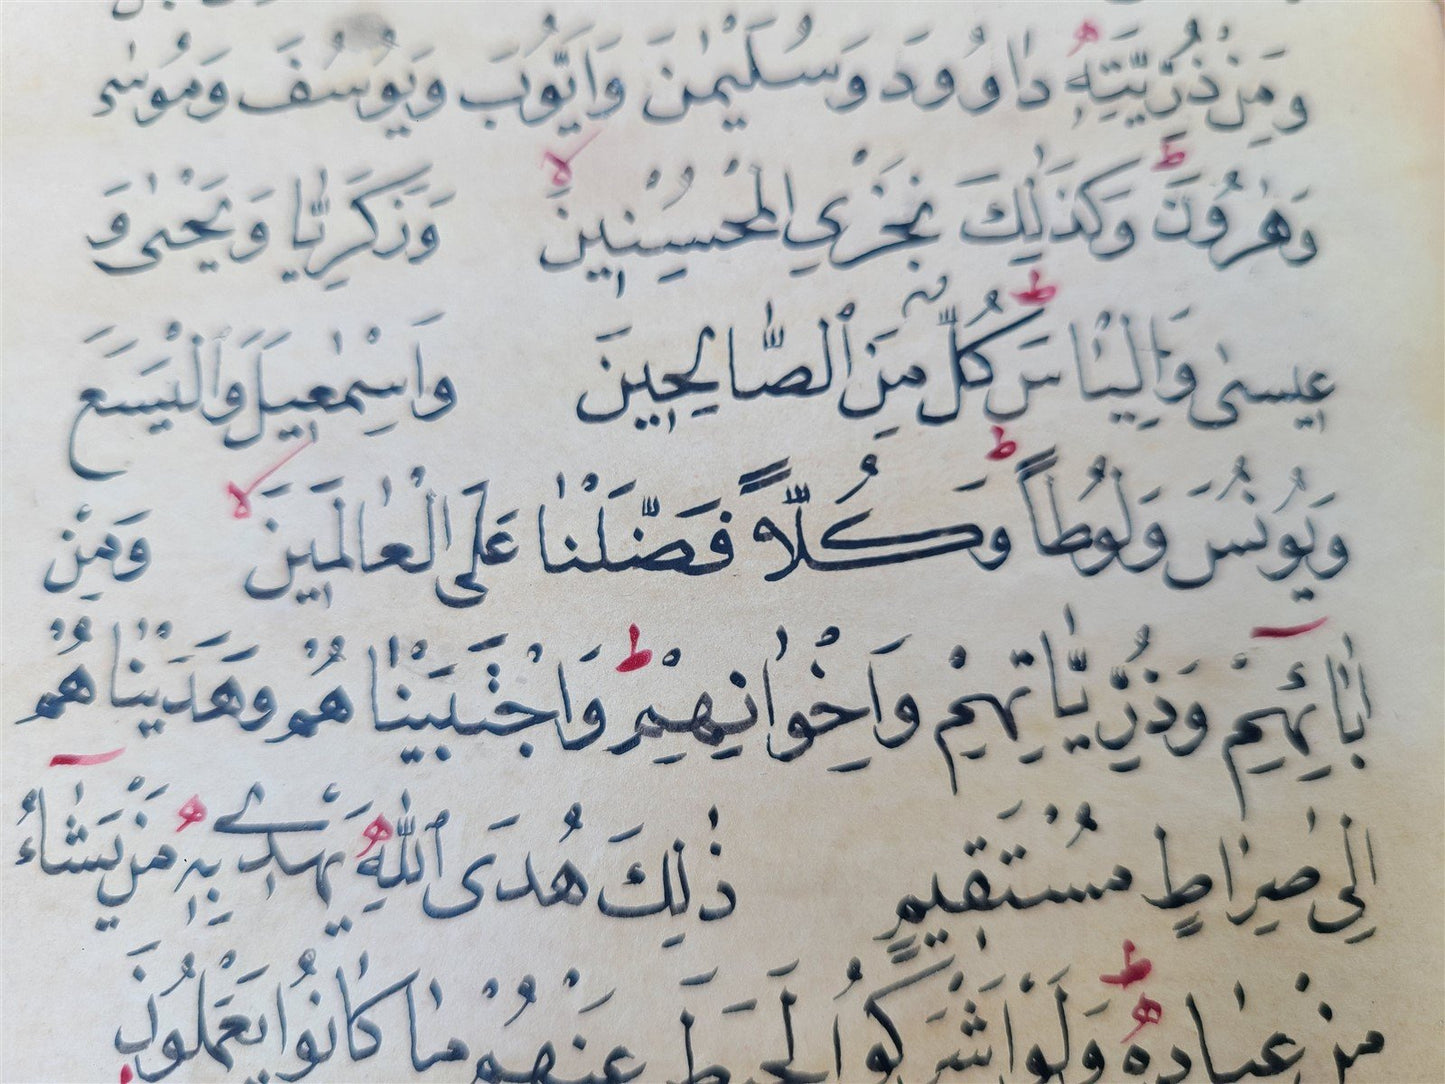 وَمِنْ ذُرِّيَّتِهٖ دَاوُودَ وَسُلَيْمٰنَ وَاَيُّوبَ وَيُوسُفَ وَمُوسٰى
وَهٰرُونَ ط وَكَذٰلِكَ نَجْزِي الْمُحْسِنِينَ لا وَزَكَرِيَّا وَيَحْيٰى وَ
عِيسٰى وَاِلْيَاسَ ط كُلٌّ مِنَ الصَّالِحِينَ وَاِسْمٰعِيلَ وَالْيَسَعَ
وَيُونُسَ وَلُوطاً ط وَكُلًّا فَضَّلْنَا عَلَى الْعَالَمِينَ لا وَمِنْ
اٰبَٓائِهِمْ وَذُرِّيَّاتِهِمْ وَاِخْوَانِهِمْ ط وَاجْتَبَيْنَا هُمْ وَهَدَيْنَا هُمْ
اِلٰى صِرَاطٍ مُسْتَقِيمٍ ذٰلِكَ هُدَى اللّٰهِ يَهْدِي بِهٖ مَنْ يَشَٓاءُ
مِنْ عِبَادِهٖ ط وَلَوْ اَشْرَكُوا لَحَبِطَ عَنْهُمْ مَا كَانُوا يَعْمَلُونَ